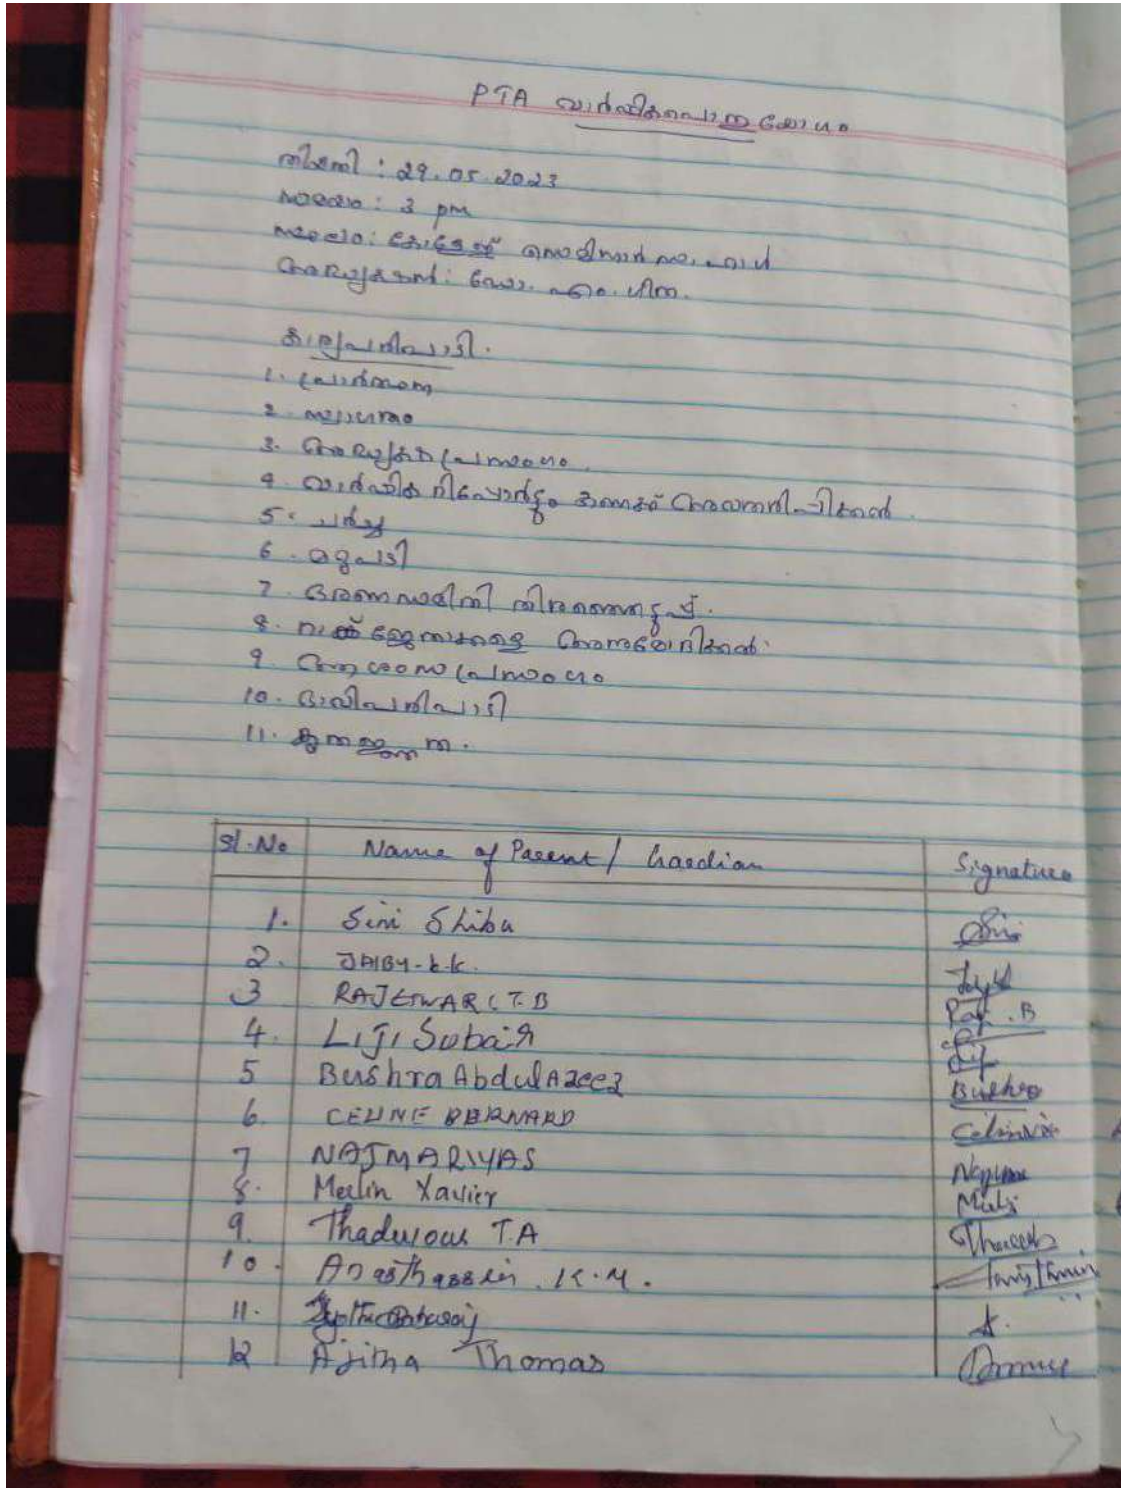 PTA വാർഷികപൊതുയോഗം
തിയതി : 29.05.2023
സമയം : 3 pm
സ്ഥലം : കോളേജ് സെമിനാർ ഹാൾ
അദ്ധ്യക്ഷൻ : ഡോ. എം. ഗീത.
കാര്യപരിപാടി.
1. പ്രാർത്ഥന
2. സ്വാഗതം
3. അദ്ധ്യക്ഷ പ്രസംഗം.
4. വാർഷിക റിപ്പോർട്ടും കണക്ക് അവതരിപ്പിക്കൽ.
5. ചർച്ച
6. മറുപടി
7. ഭരണസമിതി തിരഞ്ഞെടുപ്പ്.
8. റാങ്ക് ജേതാക്കളെ അനുമോദിക്കൽ.
9. ആശംസ പ്രസംഗം
10. ഭാവിപരിപാടി
11. കൃതജ്ഞത.
Sl.No Name of Parent / Gaardian Signature
1. Sini Shibu Sini
2. JAIBY - K.K.
3 RAJESWARI T.B
4. Liji Subair
5 Bushra Abdul Azeez Bushra
6. CELINE BERNARD
7 NAJMARIYAS Najma
8. Merlin Xavier
9. Thadurous T.A
10. K.M.
11.
12 Ajitha Thomas